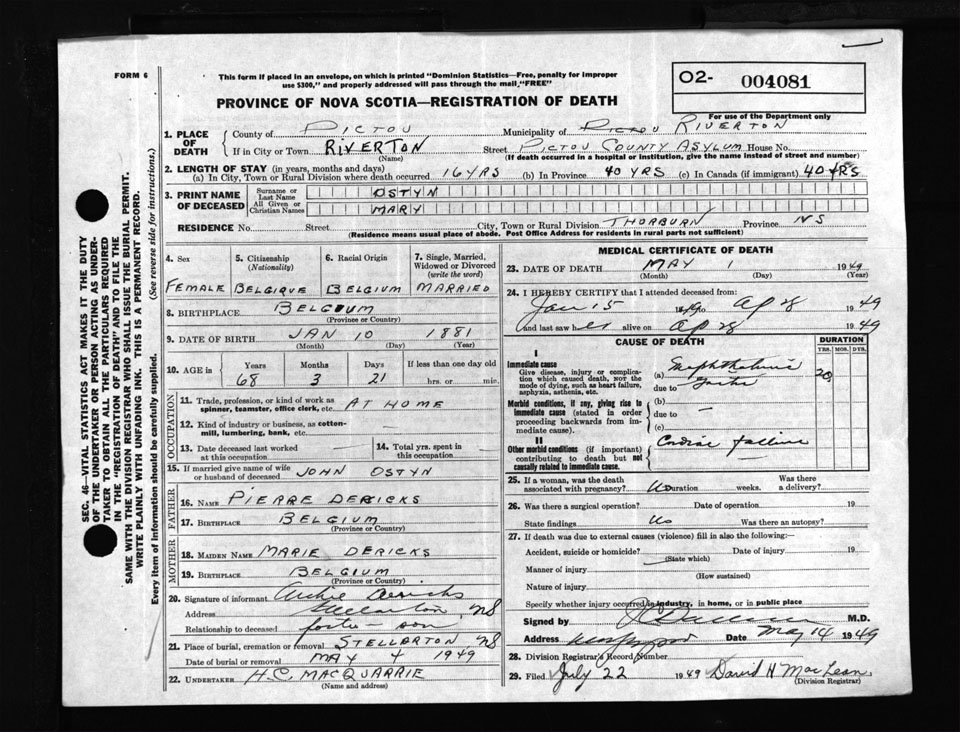 FORM 6
This form if placed in an envelope, on which is printed "Dominion Statistics—Free, penalty for improper
use $300," and properly addressed will pass through the mail, "FREE"
PROVINCE OF NOVA SCOTIA—REGISTRATION OF DEATH
O2- 004081
For use of the Department only
1. PLACE OF DEATH County of PICTOU Municipality of PICTOU RIVERTON
If in City or Town RIVERTON Street PICTOU COUNTY ASYLUM House No.
(Name) (If death occurred in a hospital or institution, give the name instead of street and number)
2. LENGTH OF STAY (in years, months and days)
(a) In City, Town or Rural Division where death occurred 16 YRS (b) In Province 40 YRS (c) In Canada (if immigrant) 40 YRS
3. PRINT NAME OF DECEASED Surname or Last Name OSTYN
All Given or Christian Names MARY
RESIDENCE No. Street City, Town or Rural Division THORBURN Province NS
(Residence means usual place of abode. Post Office Address for residents in rural parts not sufficient)
4. Sex 5. Citizenship (Nationality) 6. Racial Origin 7. Single, Married, Widowed or Divorced (write the word)
FEMALE BELGIQUE BELGIUM MARRIED
8. BIRTHPLACE BELGIUM
(Province or Country)
9. DATE OF BIRTH JAN 10 1881
(Month) (Day) (Year)
10. AGE in Years Months Days If less than one day old
68 3 21 hrs. or min.
OCCUPATION
11. Trade, profession or kind of work as spinner, teamster, office clerk, etc. AT HOME
12. Kind of industry or business, as cotton-mill, lumbering, bank, etc.
13. Date deceased last worked at this occupation 14. Total yrs. spent in this occupation
15. If married give name of wife or husband of deceased JOHN OSTYN
FATHER
16. NAME PIERRE DERICKS
17. BIRTHPLACE BELGIUM
(Province or Country)
MOTHER
18. MAIDEN NAME MARIE DERICKS
19. BIRTHPLACE BELGIUM
(Province or Country)
20. Signature of informant Archie Dericks
Address Stellarton NS
Relationship to deceased foster-son
21. Place of burial, cremation or removal STELLARTON NS
Date of burial or removal MAY 4 1949
22. UNDERTAKER H.C. MACQUARRIE
(Name and address)
MEDICAL CERTIFICATE OF DEATH
23. DATE OF DEATH MAY 1 1949
(Month) (Day) (Year)
24. I HEREBY CERTIFY that I attended deceased from:
Jan 15 1949 to Ap 28 1949
and last saw her alive on Ap 28 1949
CAUSE OF DEATH DURATION
YRS. MOS. DYS.
I
Immediate cause
Give disease, injury or complication which caused death, NOT the mode of dying, such as heart failure, asphyxia, asthenia, etc.
(a) 20
due to
Morbid conditions, if any, giving rise to immediate cause (stated in order proceeding backwards from immediate cause).
(b)
due to
(c)
II
Other morbid conditions (if important) contributing to death but not causally related to immediate cause.
Cardiac failure
25. If a woman, was the death associated with pregnancy? No Duration weeks. Was there a delivery?
26. Was there a surgical operation? Date of operation 19
State findings No Was there an autopsy?
27. If death was due to external causes (violence) fill in also the following:—
Accident, suicide or homicide? Date of injury 19
(State which)
Manner of injury
(How sustained)
Nature of injury
Specify whether injury occurred in industry, in home, or in public place
Signed by M.D.
Address Date May 14 1949
28. Division Registrar's Record Number
29. Filed July 22 1949 David H MacLean
(Division Registrar)
SEC. 46—VITAL STATISTICS ACT MAKES IT THE DUTY
OF THE UNDERTAKER OR PERSON ACTING AS UNDER-
TAKER TO OBTAIN ALL THE PARTICULARS REQUIRED
IN THE "REGISTRATION OF DEATH" AND TO FILE THE
SAME WITH THE DIVISION REGISTRAR WHO SHALL ISSUE THE BURIAL PERMIT.
WRITE PLAINLY WITH UNFADING INK. THIS IS A PERMANENT RECORD.
Every item of information should be carefully supplied. (See reverse side for instructions.)